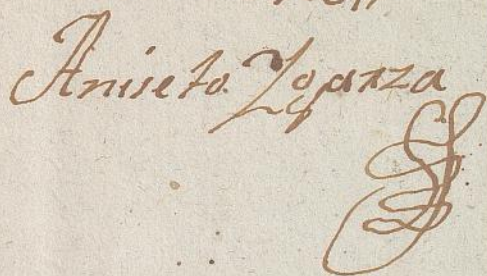 Aniseto Ygarza